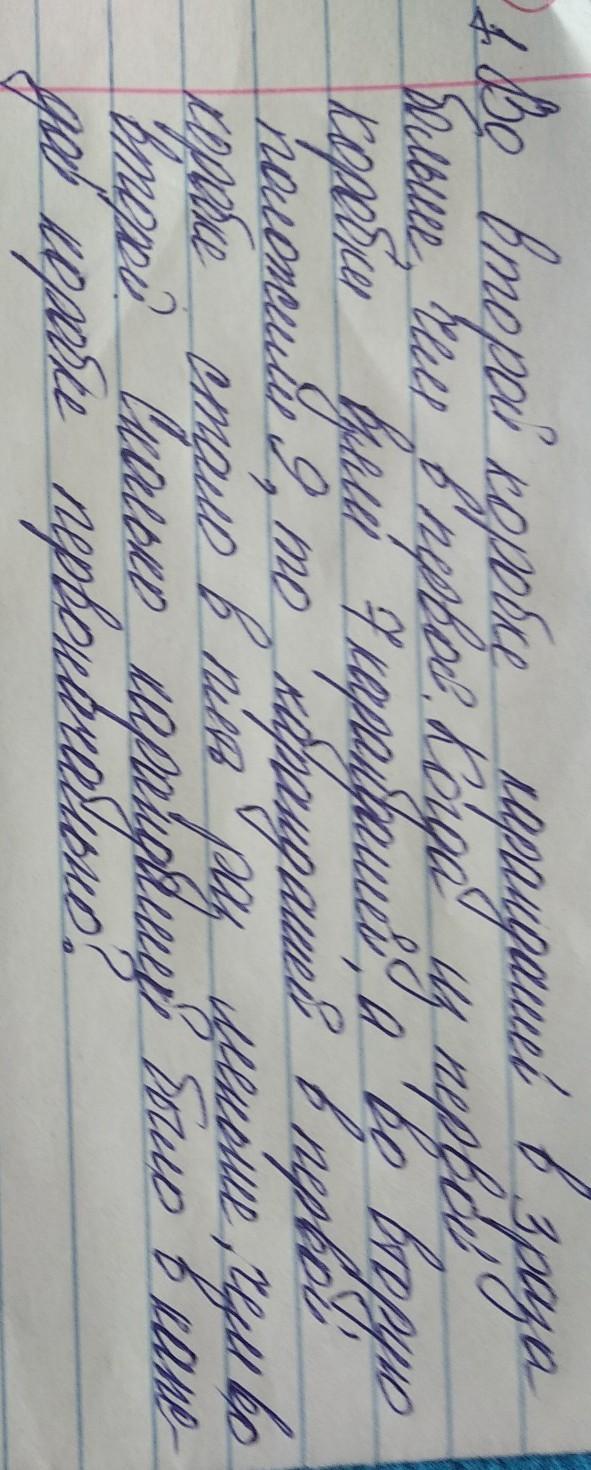 1. Во второй коробке карандашей в 3 раза
больше, чем в первой. Когда из первой
коробки взяли 7 карандашей, а во вторую
положили 9, то карандашей в первой
коробке стало в пять раз меньше, чем во
второй. Сколько карандашей было в каж-
дой коробке первоначально?